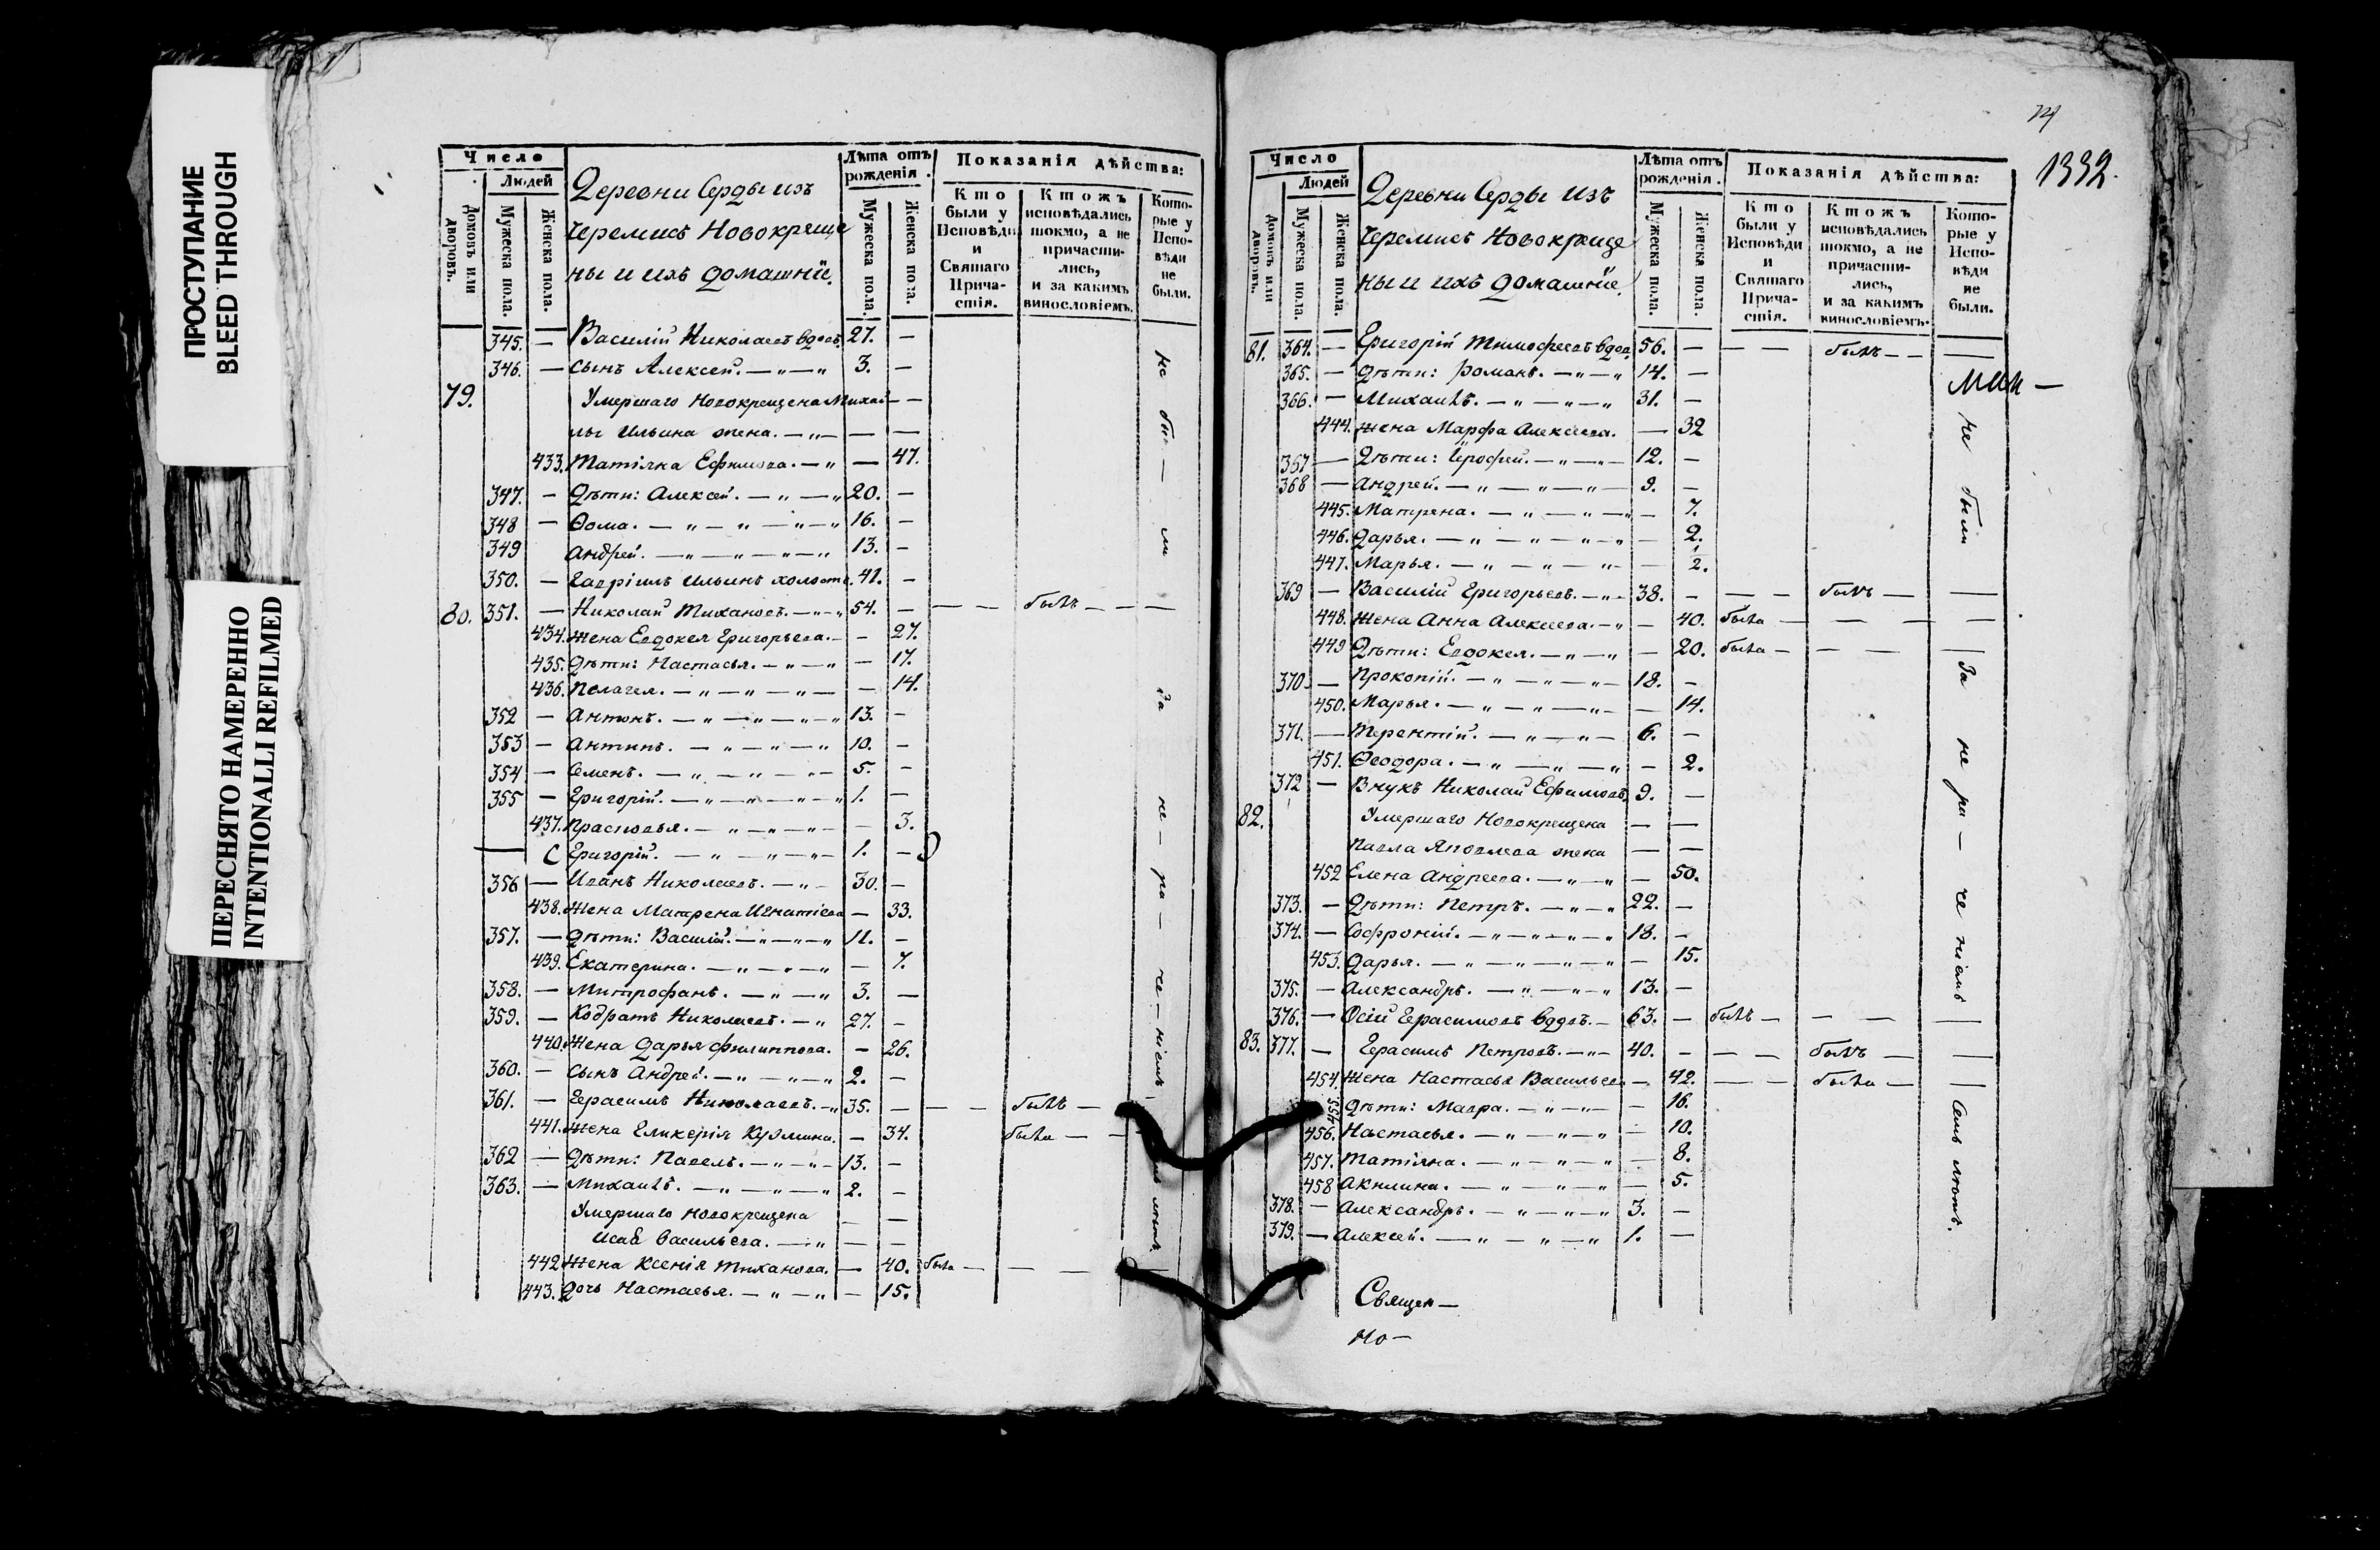 ПРОСТУПАНИЕ
BLEED THROUGH
ПЕРЕСНЯТО НАМЕРЕННО
INTENTIONALLI REFILMED
Число
Людей
Домовъ или дворовъ.
Мужеска пола.
Женска пола.
Деревни Серды изъ
Черемисъ Новокреще
ны и ихъ домашніе.
Лѣта отъ рожденія.
Мужеска пола.
Женска пола.
Показанія дѣйства:
Кто были у Исповѣди и Святаго Причастія.
Ктожъ исповѣдались токмо, а не причастились, и за какимъ винословіемъ.
Которые у Исповѣди не были.
345. — Василій Николаевъ вдовъ. 27. —
346. — Сынъ Алексей. — „ — „ 3. —
79. Умершаго Новокрещена Михаи — —
лы Ильина жена. — „ — — —
433. Татіяна Ефимова. — „ — 47.
347. — Дѣти: Алексей. — „ — „ 20. —
348 — Ѳома. — „ — „ — „ — „ 16. —
349 Андрей. — „ — „ — „ — „ 13. —
350. — Гавріилъ Ильинъ холостъ. 41. —
80. 351. — Николай Тихановъ. — „ — „ 54. — — — былъ — — —
434. Жена Евдокея Григорьева. — — 27.
435. Дѣти: Настасья. — „ — „ — 17.
436. Пелагея. — „ — „ — „ — — 14.
352 — Антонъ. — „ — „ — „ — „ 13. —
353 — Антипъ. — „ — „ — „ 10. —
354 — Семенъ. — „ — „ — „ — 5. —
355 — Григорій. — „ — „ — „ — „ 1. —
437. Прасковья. — „ — „ — „ — — 3.
Григорій. — „ — „ — „ — 1. —
356 — Иванъ Николаевъ. — „ — 30. —
438. Жена Матрена Игнатіева — 33.
357. — Дѣти: Василій. — „ — „ — „ 11. —
439. Екатерина. — „ — „ — „ — 7.
358. — Митрофанъ. — „ — „ 3. —
359. — Кодратъ Николаевъ. — „ 27. —
440. Жена Дарья Филиппова. — 26.
360. — Сынъ Андрей. — „ — „ — „ 2. —
361. — Герасимъ Николаевъ. — „ 35. — — — былъ —
441. Жена Гликерія Кузмина. — 34. была — —
362 — Дѣти: Павелъ. — „ — „ — 13. —
363. — Михаилъ. — „ — „ — „ 2. —
Умершаго Новокрещена — —
Исаа Васильева. — „ — —
442 Жена Ксенія Тиханова. — 40. была — — —
443. Дочь Настасья. — „ — „ — 15.
За не — ра — че — ніемъ
лѣтъ.
1332.
Число
Людей
Домовъ или дворовъ.
Мужеска пола.
Женска пола.
Деревни Серды изъ
Черемисъ Новокреще
ны и ихъ домашніе.
Лѣта отъ рожденія.
Мужеска пола.
Женска пола.
Показанія дѣйства:
Кто были у Исповѣди и Святаго Причастія.
Ктожъ исповѣдались токмо, а не причастились, и за какимъ винословіемъ.
Которые у Исповѣди не были.
81. 364. — Григорій Тимофеевъ вдов. 56. — — — былъ — — —
365. — Дѣти: Романъ. — „ — „ 14. —
366. — Михаилъ. — „ — „ — „ 31. —
444. Жена Марфа Алексеева. — 32
367 — Дѣти: Ерофей. — „ — „ — 12. —
368 — Андрей. — „ — „ — „ — 9. —
445. Матрена. — „ — „ — „ — 7.
446. Дарья. — „ — „ — „ — „ — 2.
447. Марья. — „ — „ — „ — — 1/2.
369 — Василій Григорьевъ. — „ — 38. — — — былъ — —
448. Жена Анна Алексеева. — „ — 40. была — — — —
449 Дѣти: Евдокея. — „ — „ — 20. была — — — —
370. — Прокопій. — „ — „ — „ — 18. —
450. Марья. — „ — „ — „ — — 14.
371. — Терентій. — „ — „ — 6. —
451. Ѳеодора. — „ — „ — „ — 2.
372 — Внукъ Николай Ефимовъ 9. —
82. Умершаго Новокрещена — —
Павла Яковлева жена — —
452 Елена Андреева. — „ — „ — 50.
373. — Дѣти: Петръ. — „ — „ 22. —
374. — Софроній. — „ — „ — „ — „ 18. —
453. Дарья. — „ — „ — „ — „ — 15.
375. — Александръ. — „ — „ — „ 13. —
376. — Осій Герасимовъ вдовъ. — 63. — былъ — — — —
83. 377. — Герасимъ Петровъ. — „ — 40. — — — былъ — —
454. Жена Настасья Васильева — 42. — — была — —
455 Дѣти: Мавра. — „ — „ — — 16.
456. Настасья. — „ — „ — „ — 10.
457. Татіяна. — „ — „ — „ — 8.
458 Акилина. — „ — „ — „ — 5.
378. — Александръ. — „ — „ — „ 3. —
379. — Алексей. — „ — „ — „ 1. —
не были
За не ра — че ніемъ
лѣтъ.
Священ —
но —